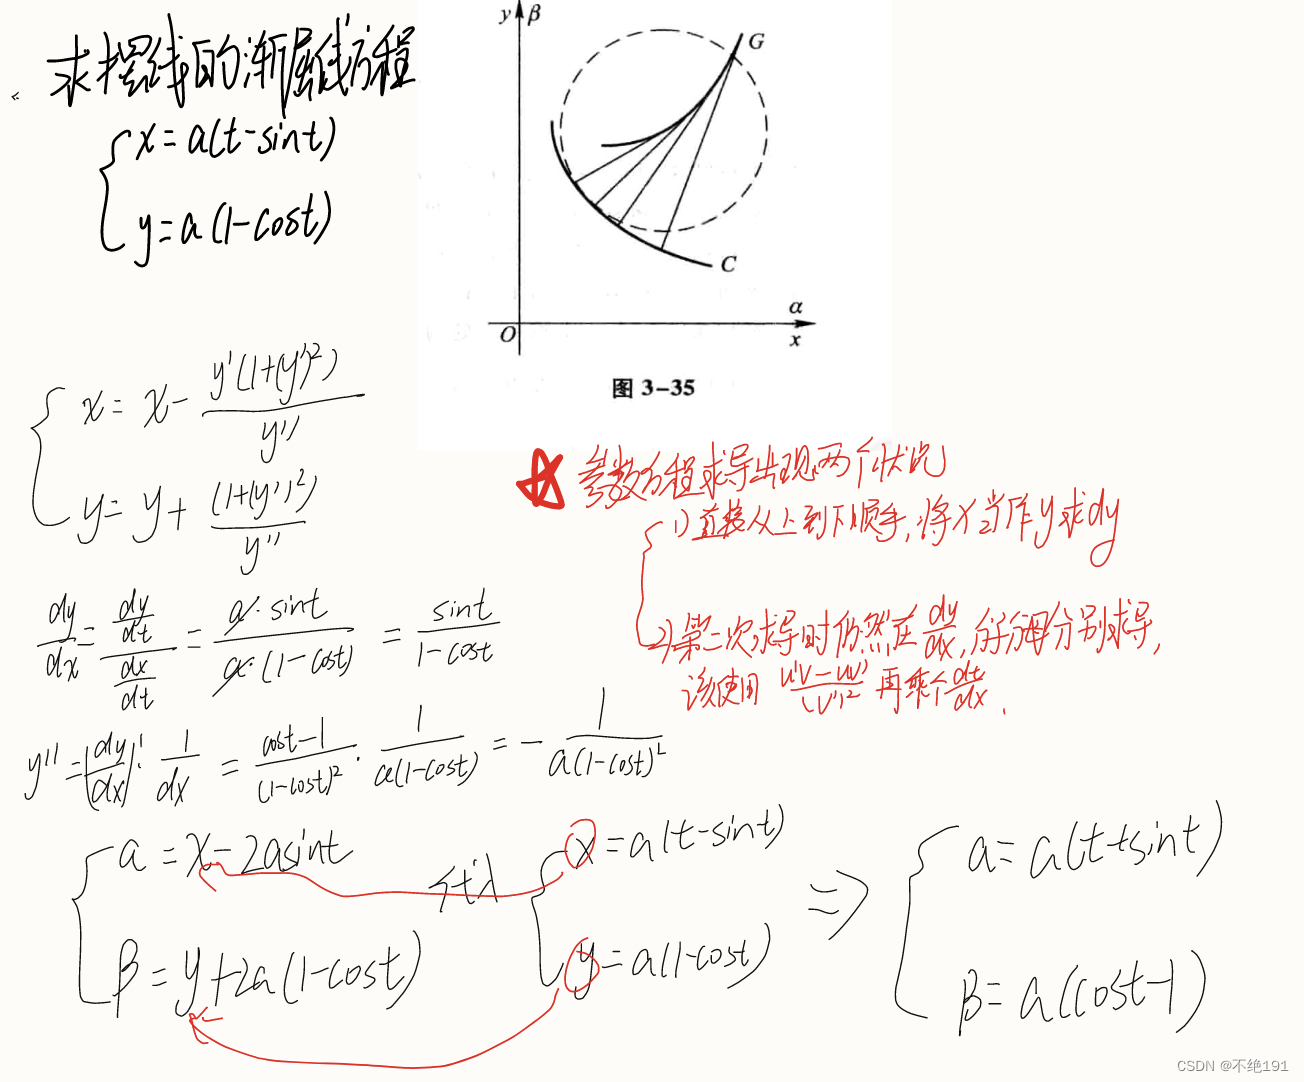 求摆线的渐屈线方程
{ x = a(t-sint)
y = a(1-cost)
y β
G
C
O
α
x
图 3-35
{ x = x - y'(1+(y')²) / y''
y = y + (1+(y')²) / y''
参数方程求导出现两个状况
{ 1) 直接从上到下顺手,将x当作y求dy
2) 第二次求导时仍然在 dy/dx,分子分母分别求导,
该使用 (u'v-uv') / (v')² 再乘个 dt/dx.
dy/dx = (dy/dt) / (dx/dt) = a·sint / a·(1-cost) = sint / (1-cost)
y'' = (dy/dx)' · 1/dx = (cost-1) / (1-cost)² · 1 / a(1-cost) = - 1 / a(1-cost)²
{ a = x - 2asint
β = y + 2a(1-cost)
代入
{ x = a(t-sint)
y = a(1-cost)
⇒
{ a = a(t+sint)
β = a(cost-1)
CSDN @不绝191